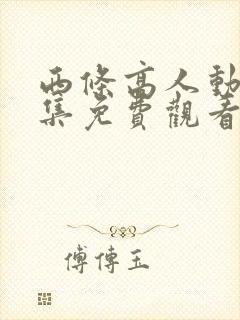 西條高人動
集免費觀看
傅傳玉